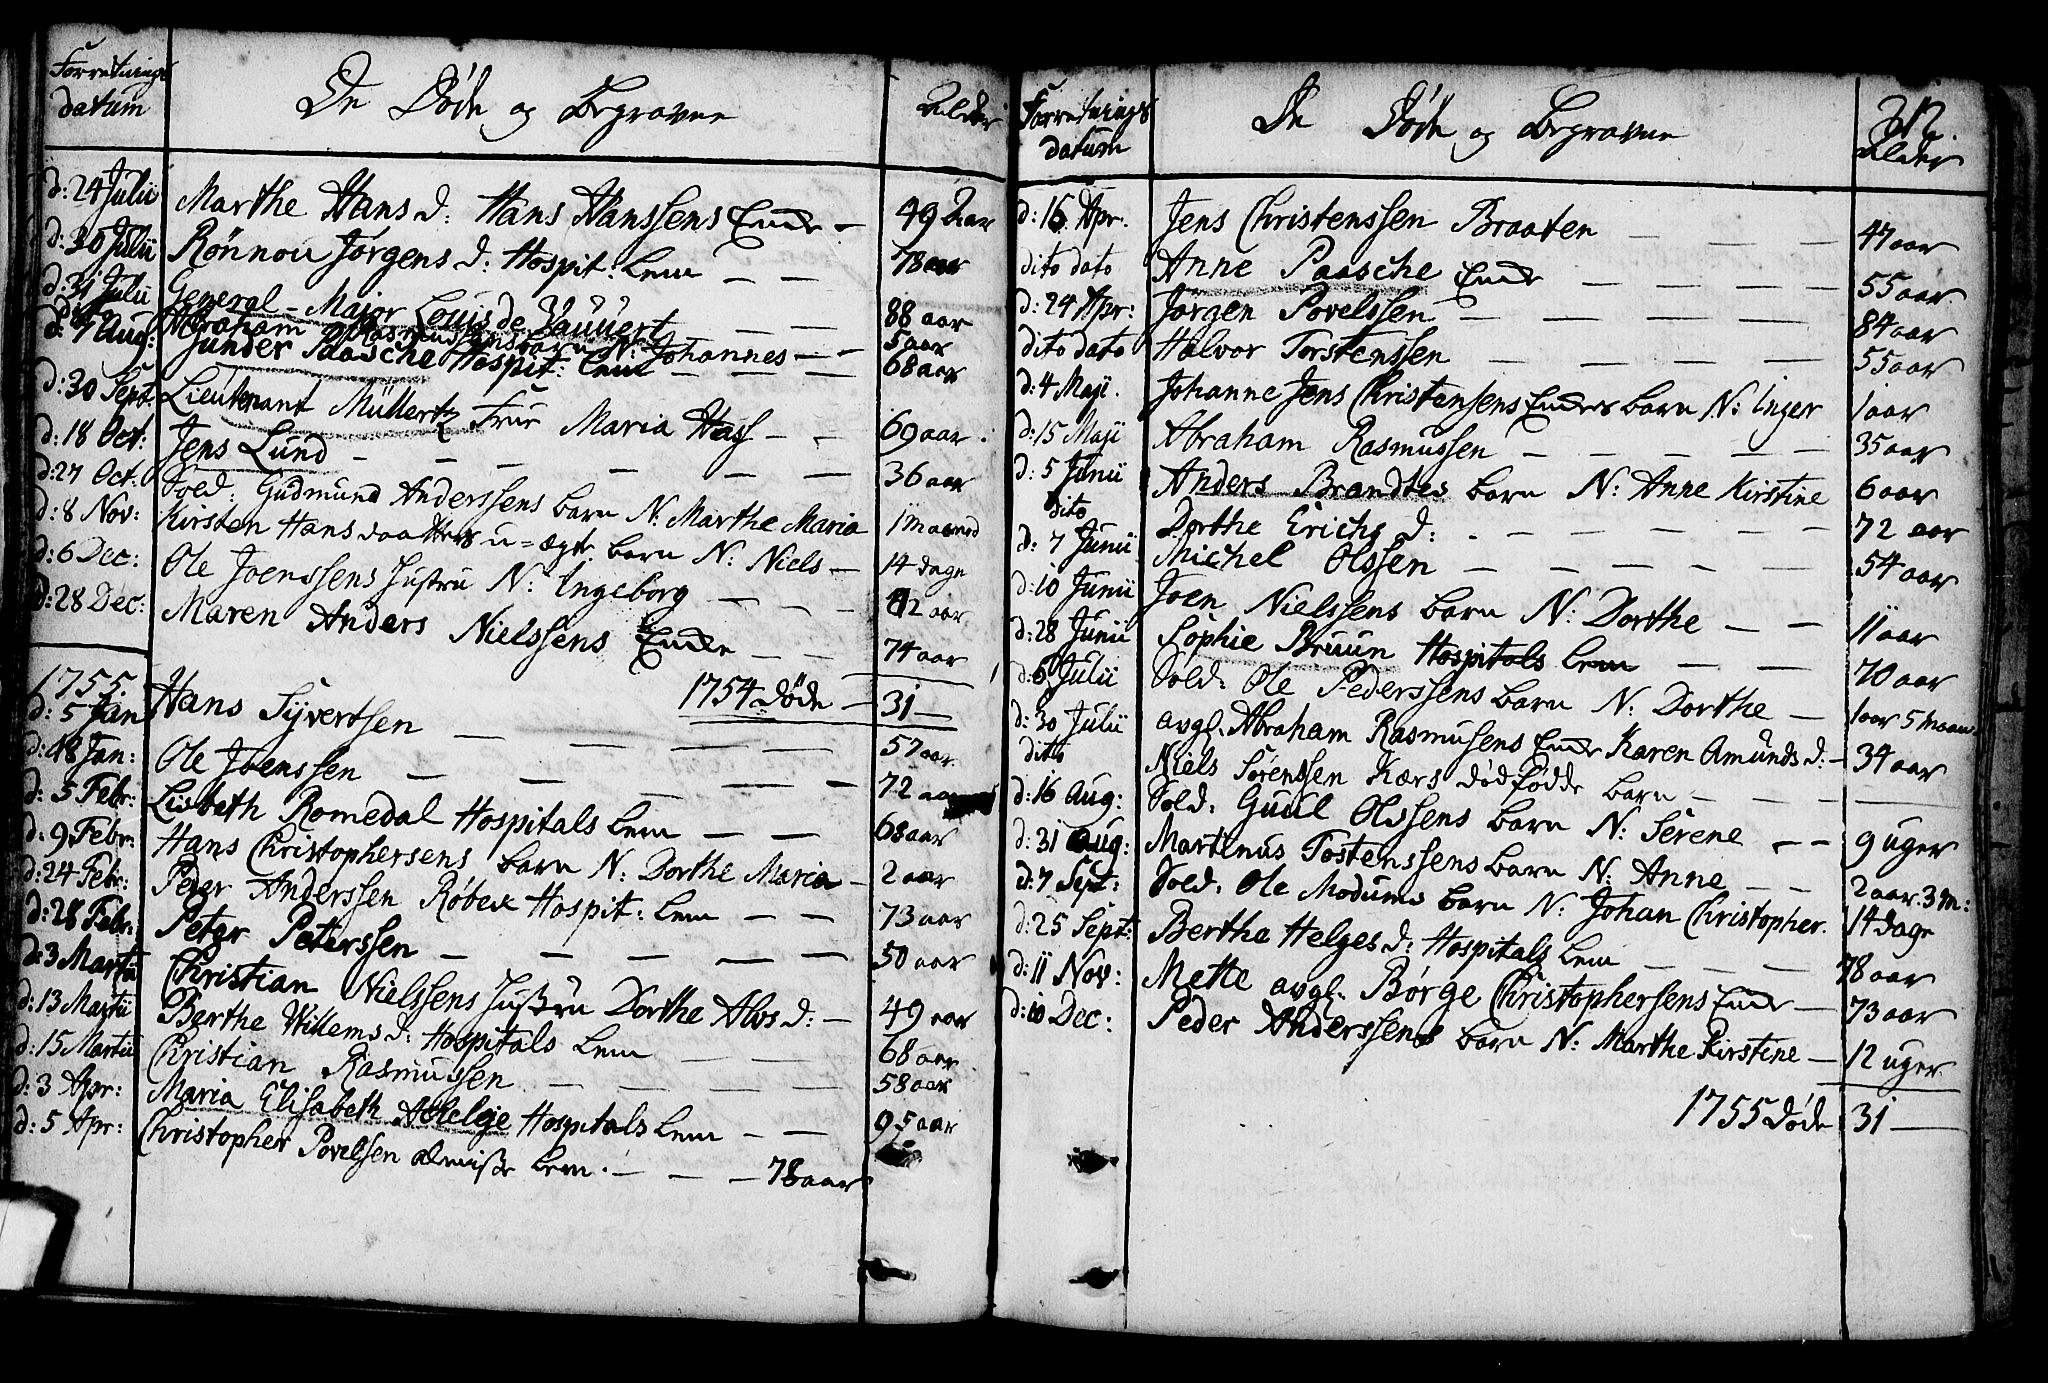 Forretnings datum
De Døde og Begravne
Alder
d: 24 Julii Marthe Hans d: Hans Hanssens Enke — 49 Aar
d: 30 Julii Rønnou Jørgens d: Hospit: Lem — — 78 aar
d: 31 Julii General-Major Louis de Vauuert — — 88 aar
dito Abraham Rasmussens barn N: Johannes — — 5 aar
d: 7 Aug: Junder Paasche Hospit: Lem — — — 68 aar
d: 30 Sept. Lieutenant Müllertz Frue Maria Hass — — 69 aar.
d: 18 Oct: Jens Lund — — — — — 36 aar
d: 27 Oct. Sold: Gudmund Anderssens barn N: Marthe Maria 1 maaned
d: 8 Nov: Kirsten Hansdaatters u-ægte barn N: Niels — 14 dage
d: 6 Dec: Ole Joenssens Hustru N: Ingeborg — — — 42 aar
d: 28 Dec: Maren Anders Nielssens Enke — — 74 aar
1754 døde — 31 —
1755.
d: 5 Jan Hans Syvertsen — — — — — 57 aar
d: 18 Jan: Ole Joenssen — — — — 72 aar
d: 5 Febr: Lisbeth Romedal Hospitals Lem — — 68 aar
d: 9 Febr: Hans Christophersens barn N: Dorthe Maria — 2 aar
d: 24 Febr: Peder Anderssen Røbek Hospit: Lem — — 73 aar
d: 28 Febr: Peter Peterssen — — — — — 50 aar
d: 3 Martii Christian Nielssens Hustru Dorthe Alvs d: — 49 aar
d: 13 Martii Berthe Willems d: Hospitals Lem — — — 68 aar
d: 15 Martii Christian Rasmussen — — — — 58 aar
d: 3 Apr: Maria Elisabeth Hospitals Lem — — 95 aar
d: 5 Apr: Christopher Povelsen almisse Lem. — — — 78 aar
Forretnings datum
De Døde og Begravne
312.
Alder
d: 16 Apr. Jens Christenssen Braaten — — — — 47 aar
dito dato Anne Paasche Enke — — — — 55 aar
d: 24 Apr: Jørgen Povelssen — — — — — 84 aar
dito dato Halvor Torstenssen — — — — — 55 aar
d: 4 Maji. Johanne Jens Christensens Enkes barn N: Inger 1 aar
d: 15 Maji Abraham Rasmussen — — — — — 35 aar
d: 5 Junii Anders Brandtes barn N: Anne Kirstine 6 aar
dito Dorthe Erichs d: — — — — — 72 aar
d: 7 Junii Michel Olssen — — — — — 54 aar
d: 10 Junii Joen Nielssens barn N: Dorthe — — 11 aar
d: 28 Junii Sophie Bruun Hospitals Lem — — 70 aar
d: 6 Julii Sold: Ole Pederssens barn N: Dorthe — 1 aar 5 maan
d: 30 Julii avgl. Abraham Rasmusens Enke Karen Amunds d: — 34 aar
dito Niels Sørenssen Kærs dødfødde barn — — — —
d: 16 Aug: Sold: Guul Olssens barn N: Serene — — 9 uger
d: 31 Aug: Martinus Tostenssens barn N: Anne — — 2 aar. 3 m:
d: 7 Sept: Sold: Ole Modums barn N: Johan Christopher. 14 dage
d: 25 Sept: Bertha Helges d: Hospitals Lem — — — 78 aar
d: 11 Nov: Mette avgl. Børge Christophersens Enke — 73 aar
d: 10 Dec: Peder Anderssens barn N: Marthe Kirstine — 12 uger
1755 døde 31 —